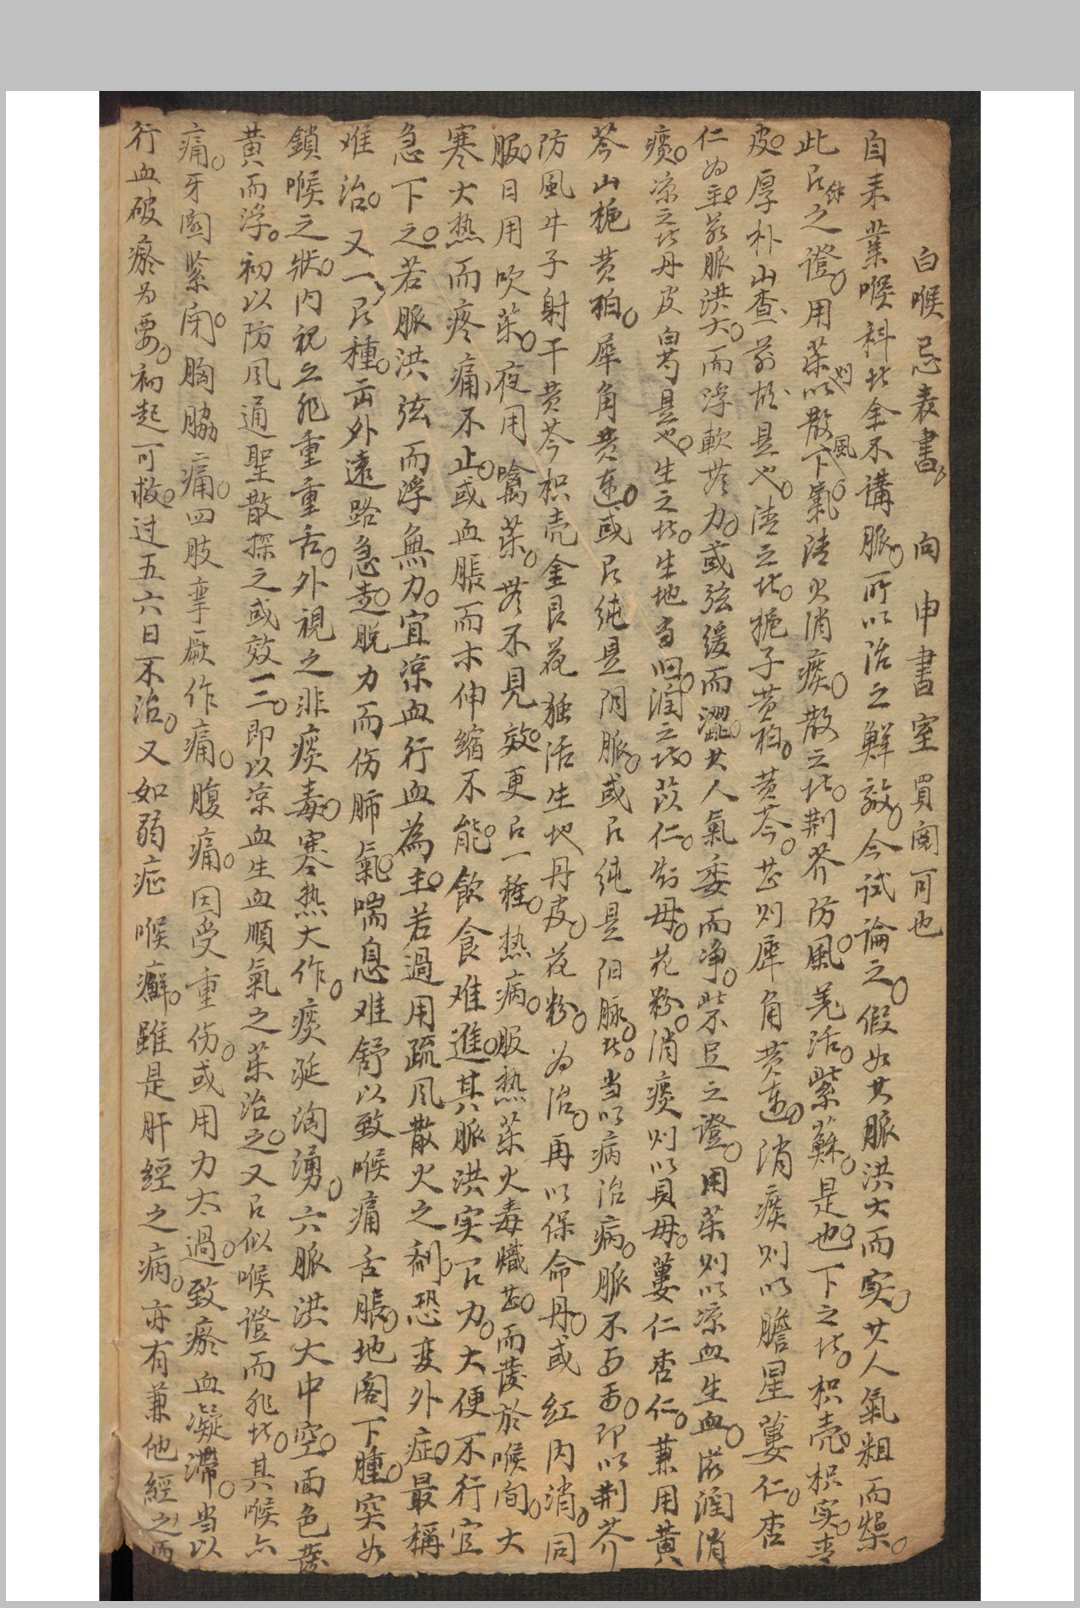 白喉忌表書 向申書室買閱可也
自來業喉科者全不講脈○所以治之鮮效○今試論之○假如其脈洪大而实○其人氣粗而燥○
此乃之證○用药以散風下氣○清火消痰○散之者○荆芥防風○羌活○紫蘇○是也○下之者○枳壳○枳实○
皮○厚朴○山查○前胡○是也○清之者○梔子黄柏○黄芩○甚则犀角黄連○消痰则以膽星蔞仁○杏
仁为主○若脈洪大○而浮軟無力○或弦缓而澀○其人氣委而净○ 之證○用药则以凉血生血○滋潤消
痰○凉之者丹皮白芍是也○生之者○生地当归○潤之者○苡仁○知母○花粉○消痰则以貝母○蔞仁杏仁○兼用黄
芩山梔黄柏○犀角黄連○或乃純是阴脈○或乃純是阳脉者○当以病治病○脈不可面○即以荆芥
防風牛子射干黄芩枳壳金艮花独活生地丹皮○花粉○为治○再以保命丹○或紅内消○同
服○日用吹药○夜用噙药○若不見效○更乃一種○热病○服热药火毒熾甚○而發於喉间○大
寒大热而疼痛不止○或血脹而木伸缩不能○飲食难進○其脈洪实有力○大便不行宜
急下之○若脈洪弦而浮無力○宜凉血行血為主○若過用疏风散火之剂○恐変外症○最稱
难治○又一乃種○缶外遠路急走○脱力而伤肺氣○喘息难舒以致喉痛舌脹○地阁下腫○突如
鎖喉之狀○内視之形重重舌○外視之非痰毒○寒热大作○痰涎洶湧○六脈洪大中空○面色發
黄而浮○初以防风通聖散探之或效一二○即以凉血生血順氣之药治之○又乃似喉證而非者○其喉亦
痛○牙関紧闭○胸脇痛○四肢挛厥作痛○腹痛○因受重伤○或用力太過○致瘀血凝滯○当以
行血破瘀为要○初起可救○过五六日不治○又如弱症喉癬○雖是肝經之病○亦有兼他經之